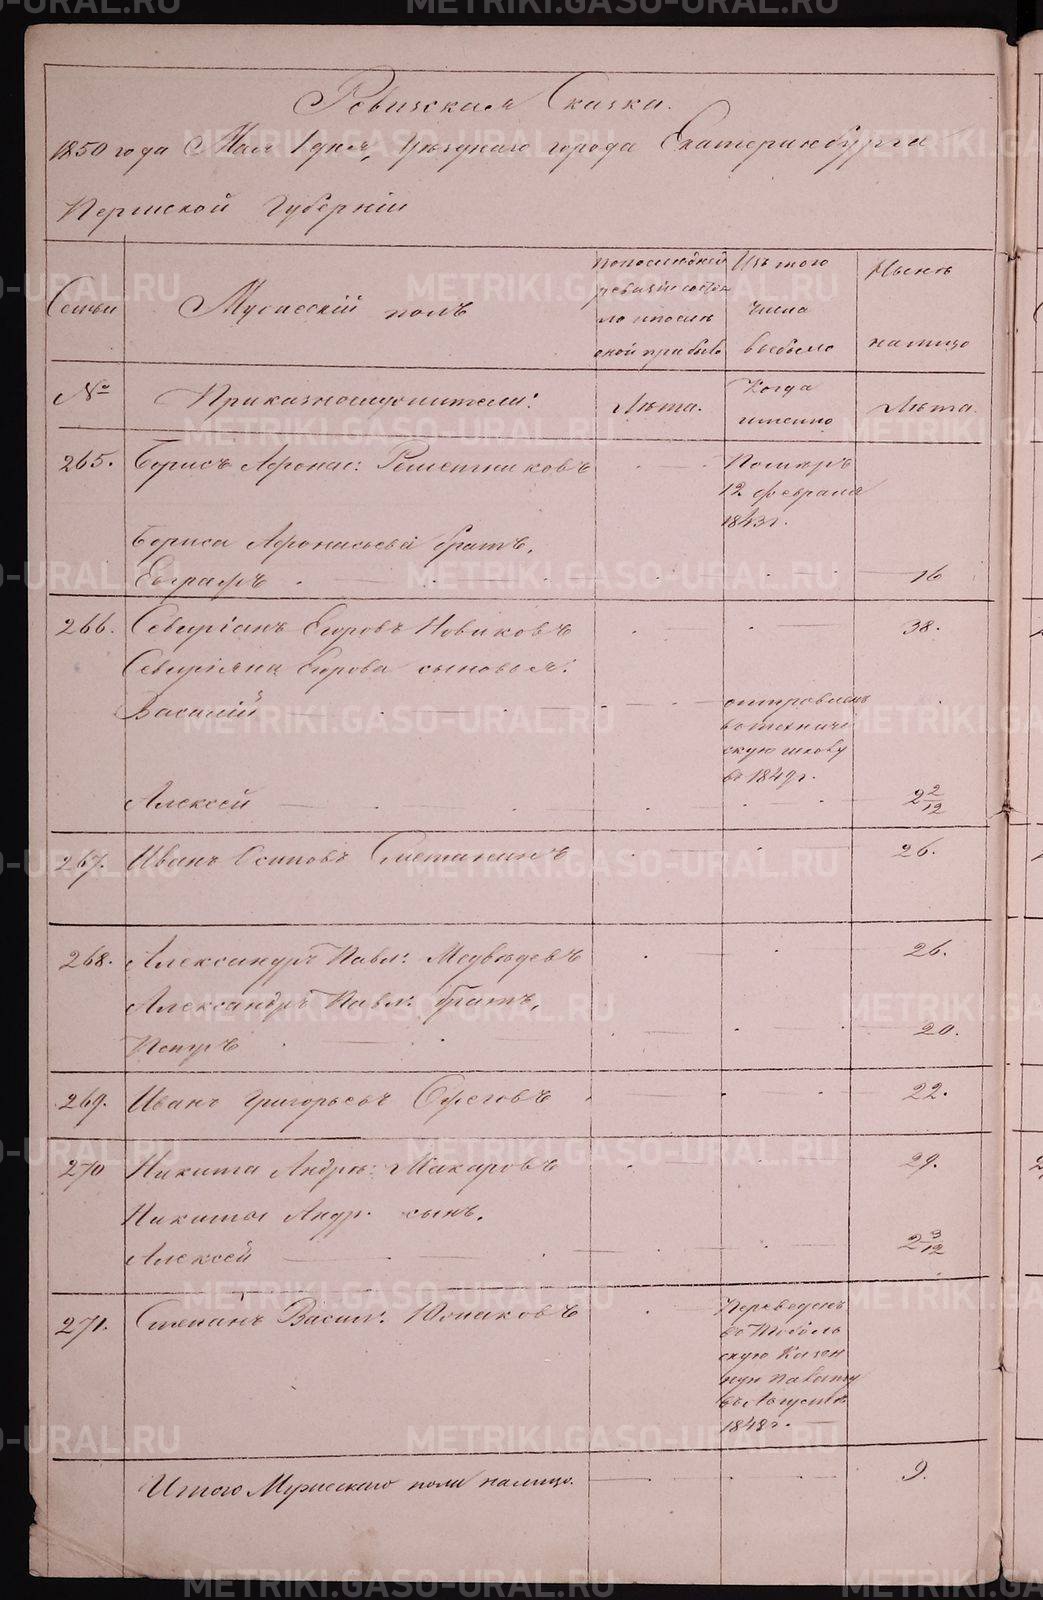 Ревизская Сказка.
1850 года Мая 1 дня, Уезднаго города Екатеринбурга
Пермской Губерніи
Семьи
Мужескій полъ
по последней ревизіи состояло и после оной прибыло
Изъ того числа выбыло
Ныне на лицо
№
Приказнослужители:
Лѣта.
Когда именно
Лѣта.
265. Борисъ Афонас: Решетниковъ
Померъ
12 февраля
1843 г.
Бориса Афонасьева братъ,
Евграфъ 16
266. Северіанъ Егоровъ Новиковъ 38.
Северіяна Егорова сыновья:
Василій
отправленъ
в техниче
скую школу
въ 1849 г.
Алексей 2 2/12
267. Иванъ Осиповъ Сметанинъ 26.
268. Александръ Павл: Медвѣдевъ 26.
Александръ Павл: братъ,
Петръ 20.
269. Иванъ Григорьевъ 22.
270 Никита Андрѣ: Макаровъ 29.
Никиты Андр. сынъ,
Алексей 2 3/12
271. Степанъ Васил: Юшковъ
Переведенъ
въ Тоболь
скую Казен
ную палату
въ Августѣ
1848 г.
Итого Мужескаго пола налицо. 9.
METRIKI.GASO-URAL.RU